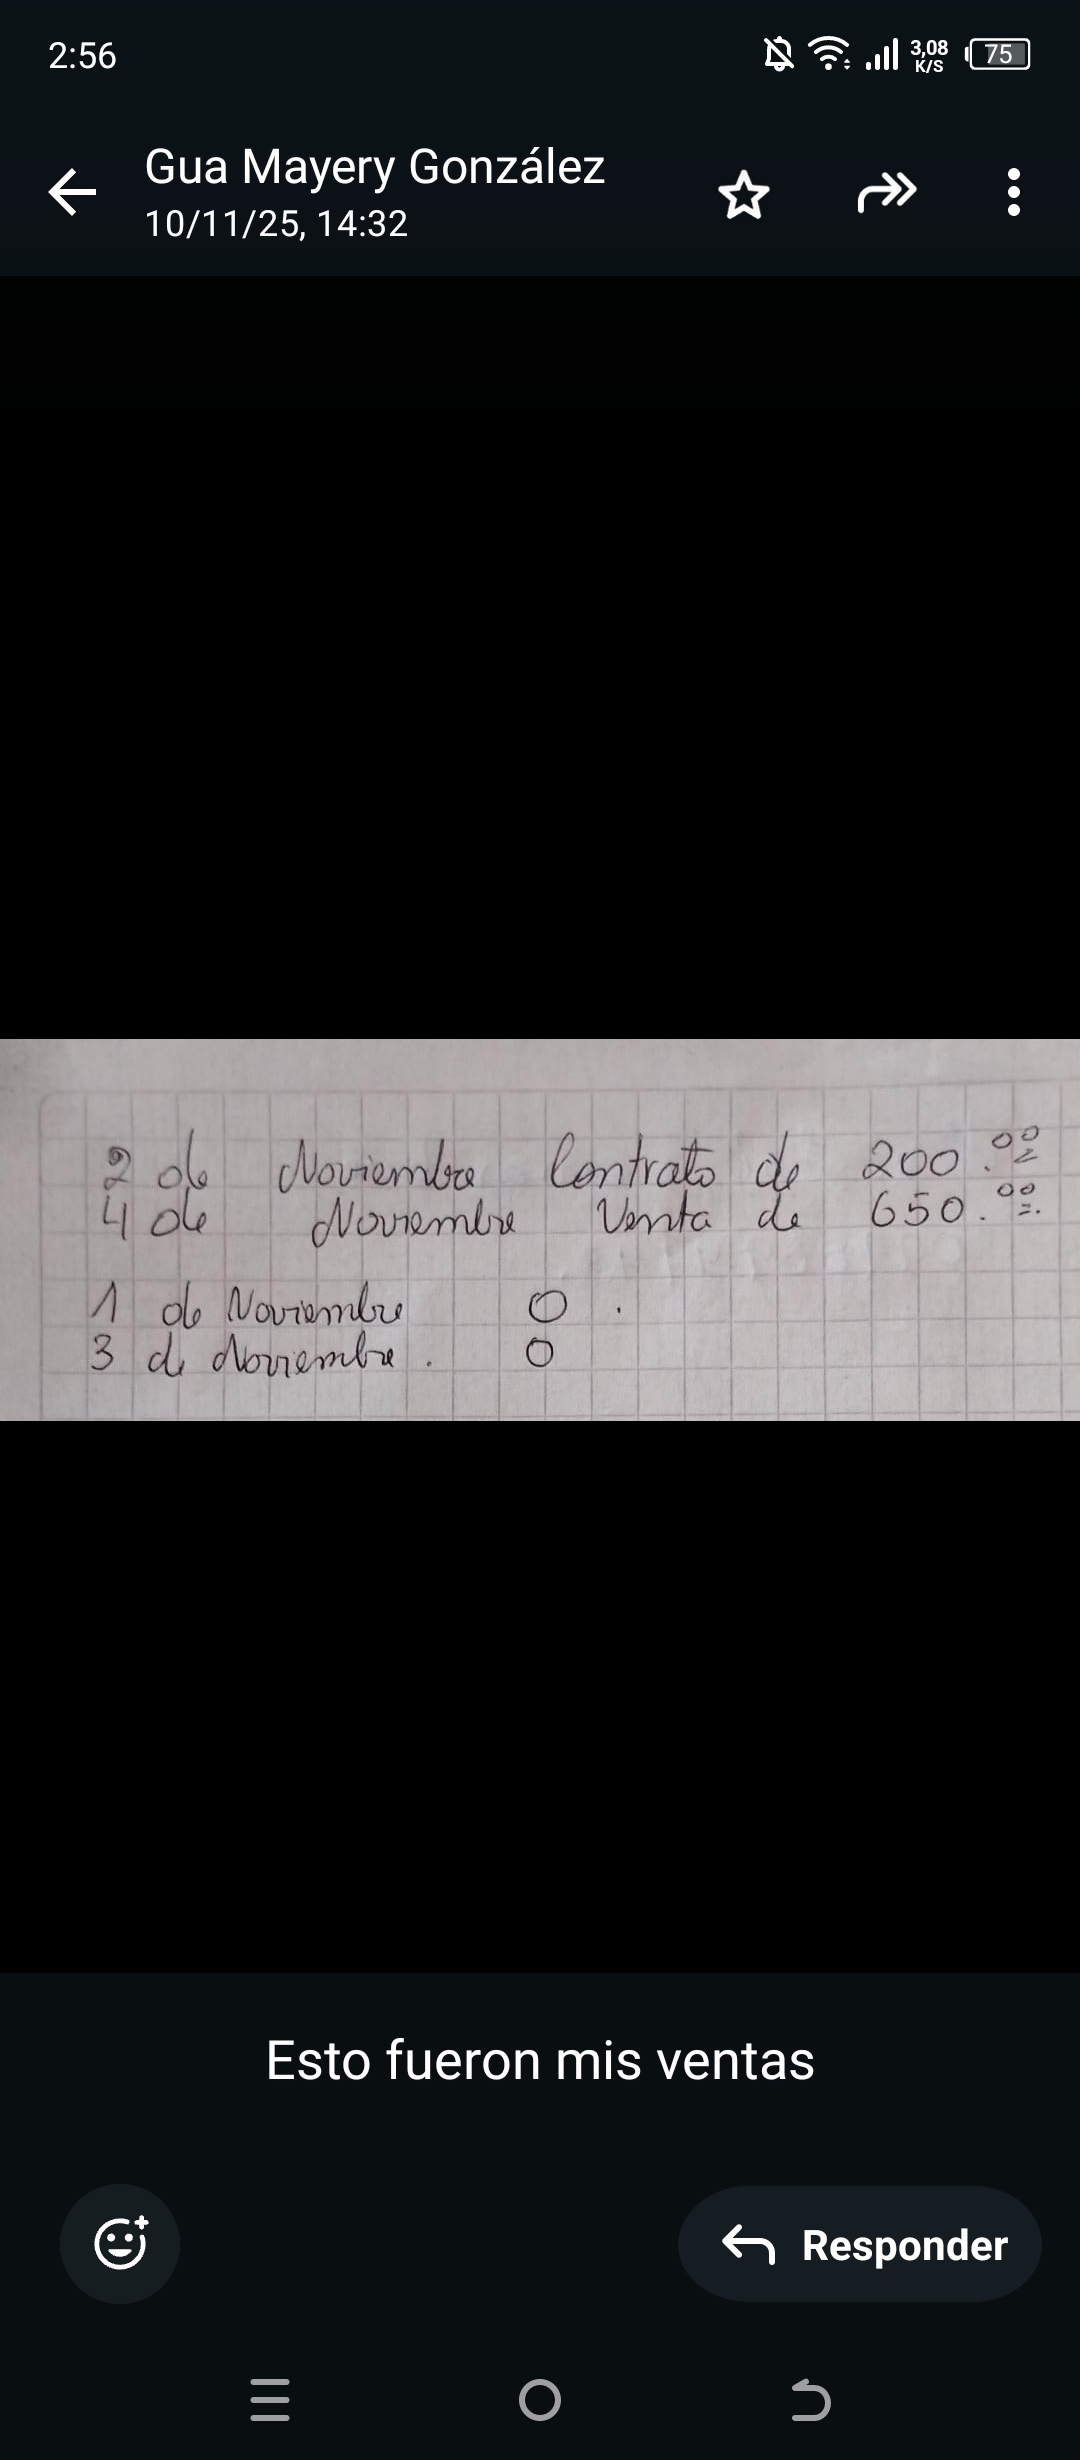 2:56
3,08
K/S
75
Gua Mayery González
10/11/25, 14:32
2 de Noviembre Contrato de 200.00
4 de Noviembre Venta de 650.00
1 de Noviembre 0 .
3 de Noviembre . 0
Esto fueron mis ventas
Responder